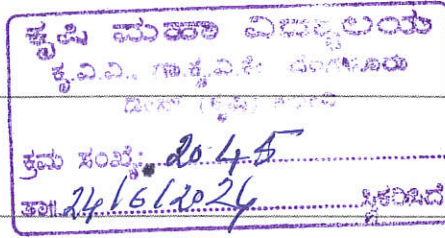 ಕೃಷಿ ಮಹಾ ವಿದ್ಯಾಲಯ
ಕೃ.ವಿ.ವಿ., ಗಾ.ಕೃ.ವಿ.ಕೇ ಬೆಂಗಳೂರು
ಕ್ರಮ ಸಂಖ್ಯೆ: 2045
ತಾ॥ 24/6/2024 ಸ್ವೀಕರಿಸಿದೆ